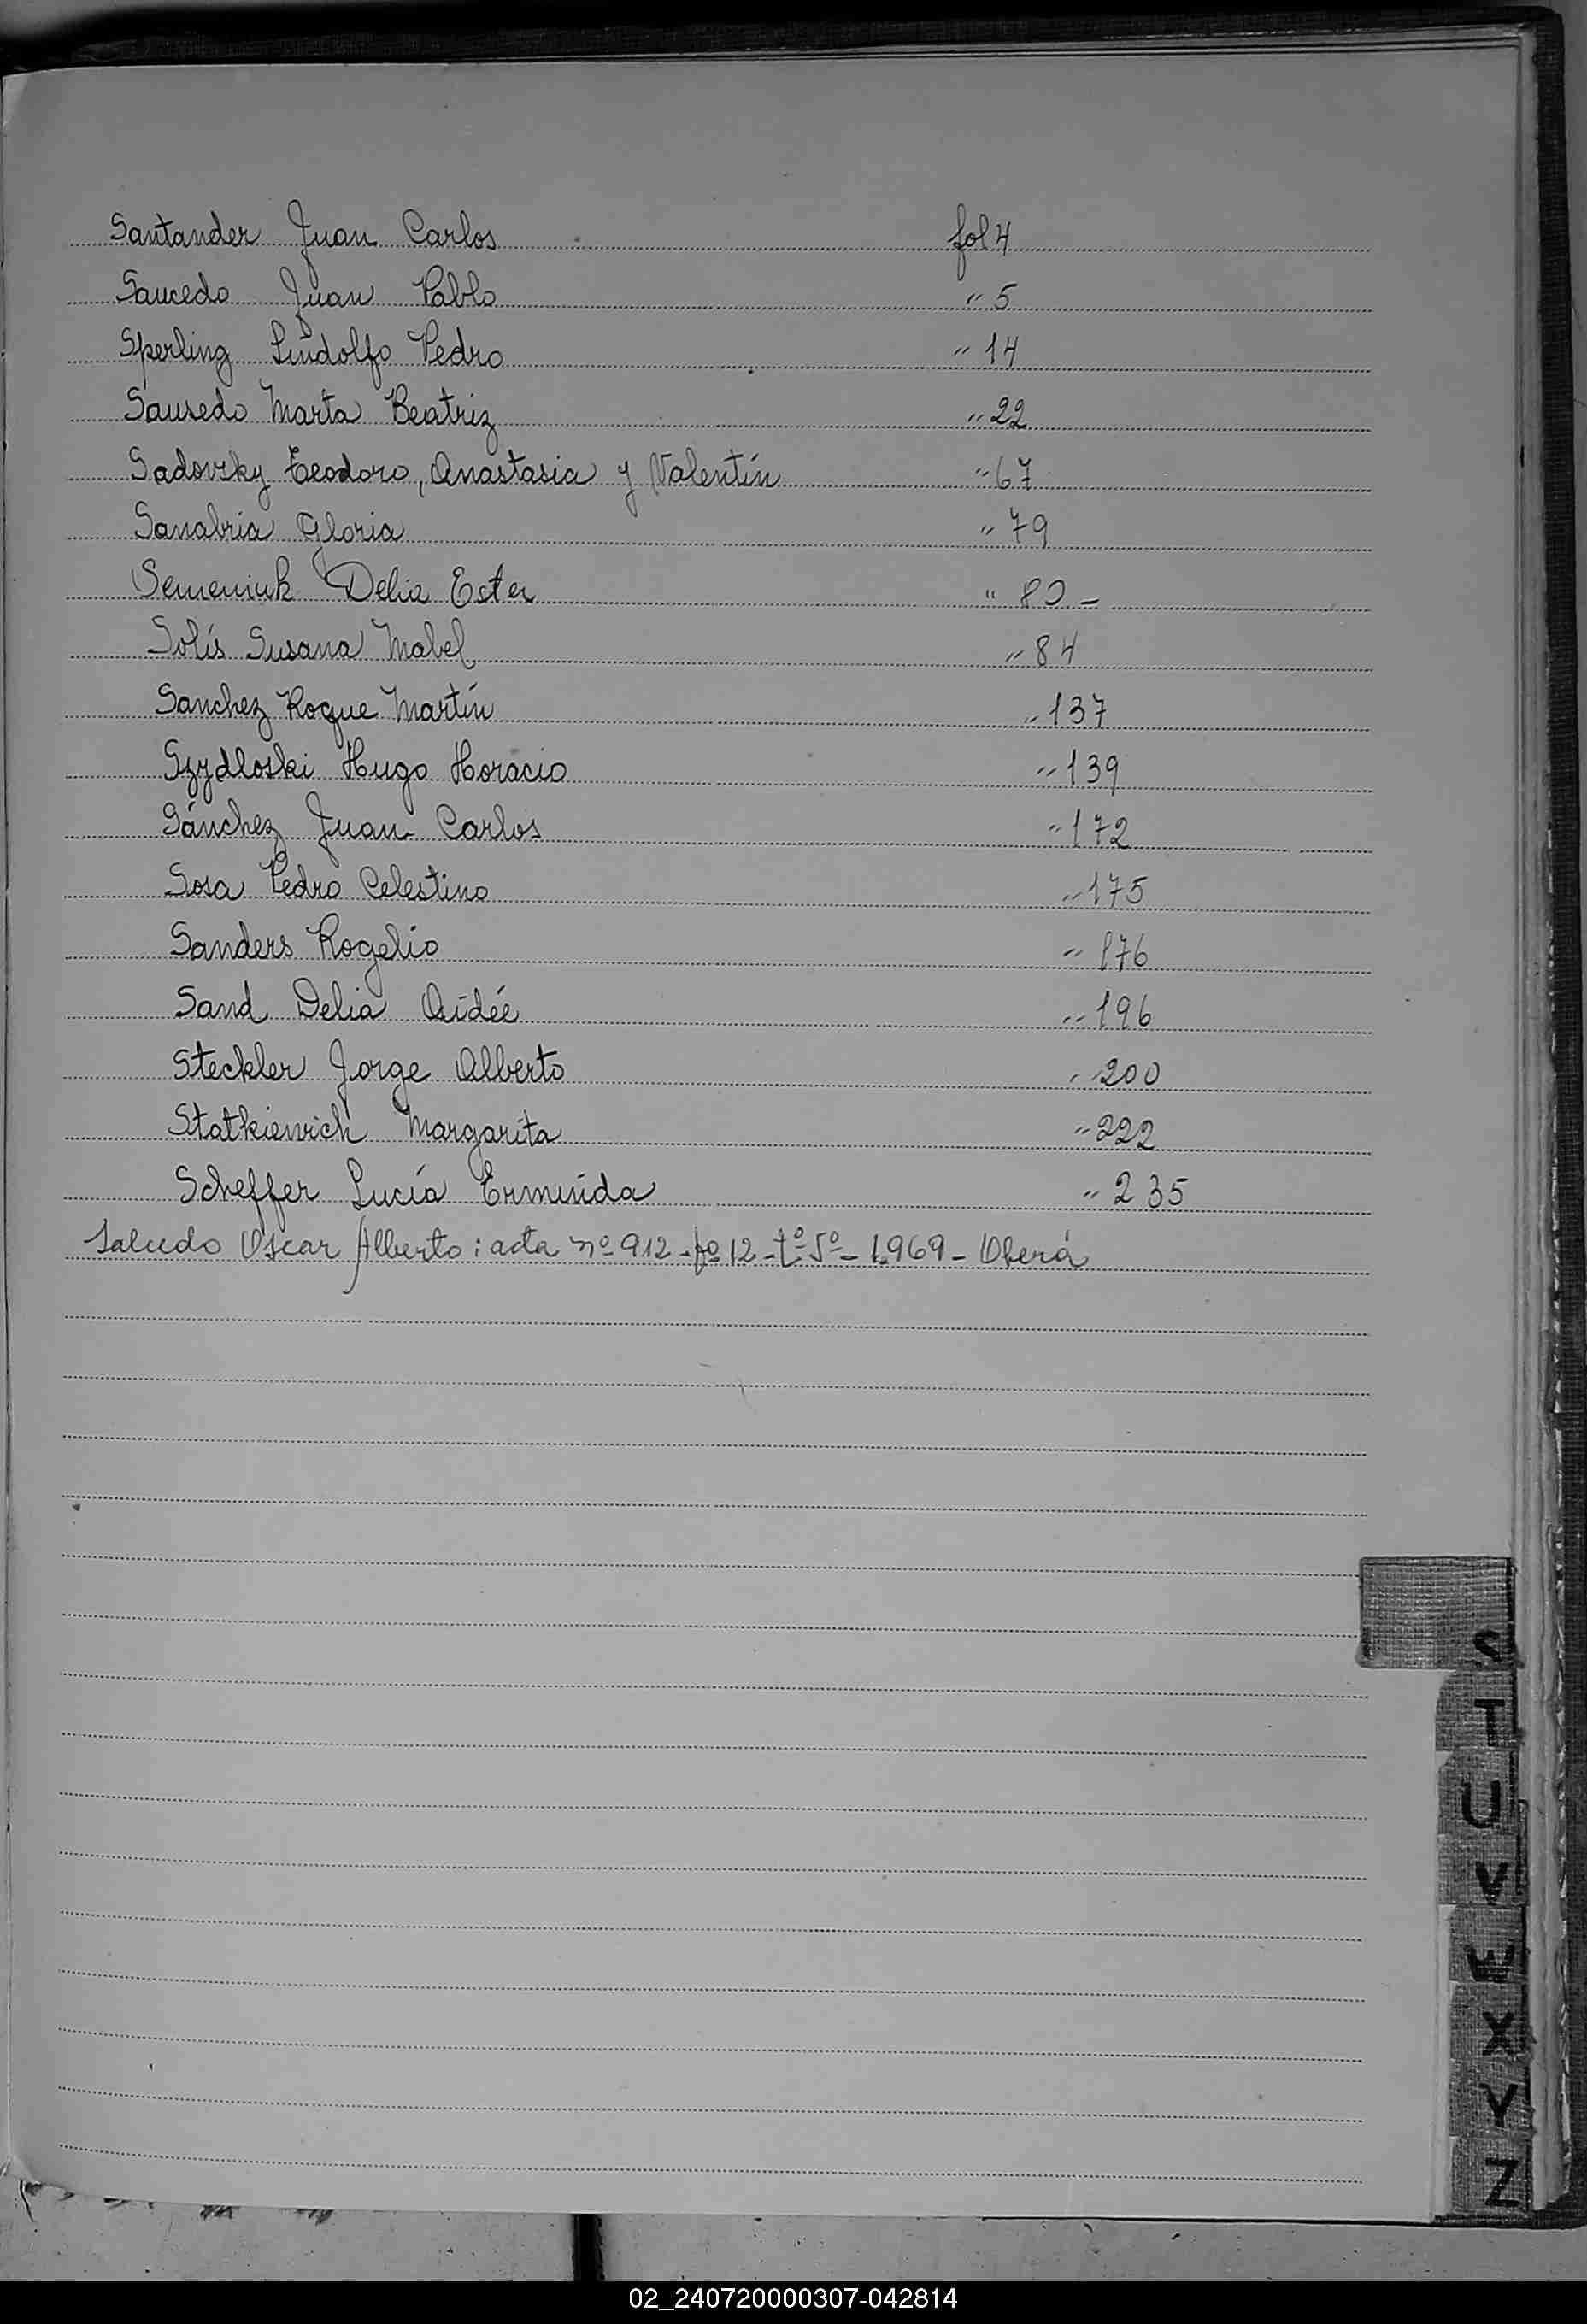 Santander Juan Carlos fol 4
Saucedo Juan Pablo " 5
Sperling Lindolfo Pedro " 14
Sausedo Marta Beatriz " 22
Sadovsky Teodoro, Anastasia y Valentín " 67
Sanabria Gloria " 79
Semeniuk Delia Ester " 80 -
Solís Susana Mabel " 84
Sanchez Roque Martín " 137
Szydloski Hugo Horacio " 139
Sánchez Juan Carlos " 172
Sosa Pedro Celestino " 175
Sanders Rogelio " 176
Sand Delia Aidée " 196
Steckler Jorge Alberto " 200
Statkievich Margarita " 222
Scheffer Lucía Erminda " 235
Salcedo Oscar Alberto: acta nº 912 - fº 12 - tº 5º - 1.969 - Oberá
S
T
U
V
W
X
Y
Z
02_240720000307-042814